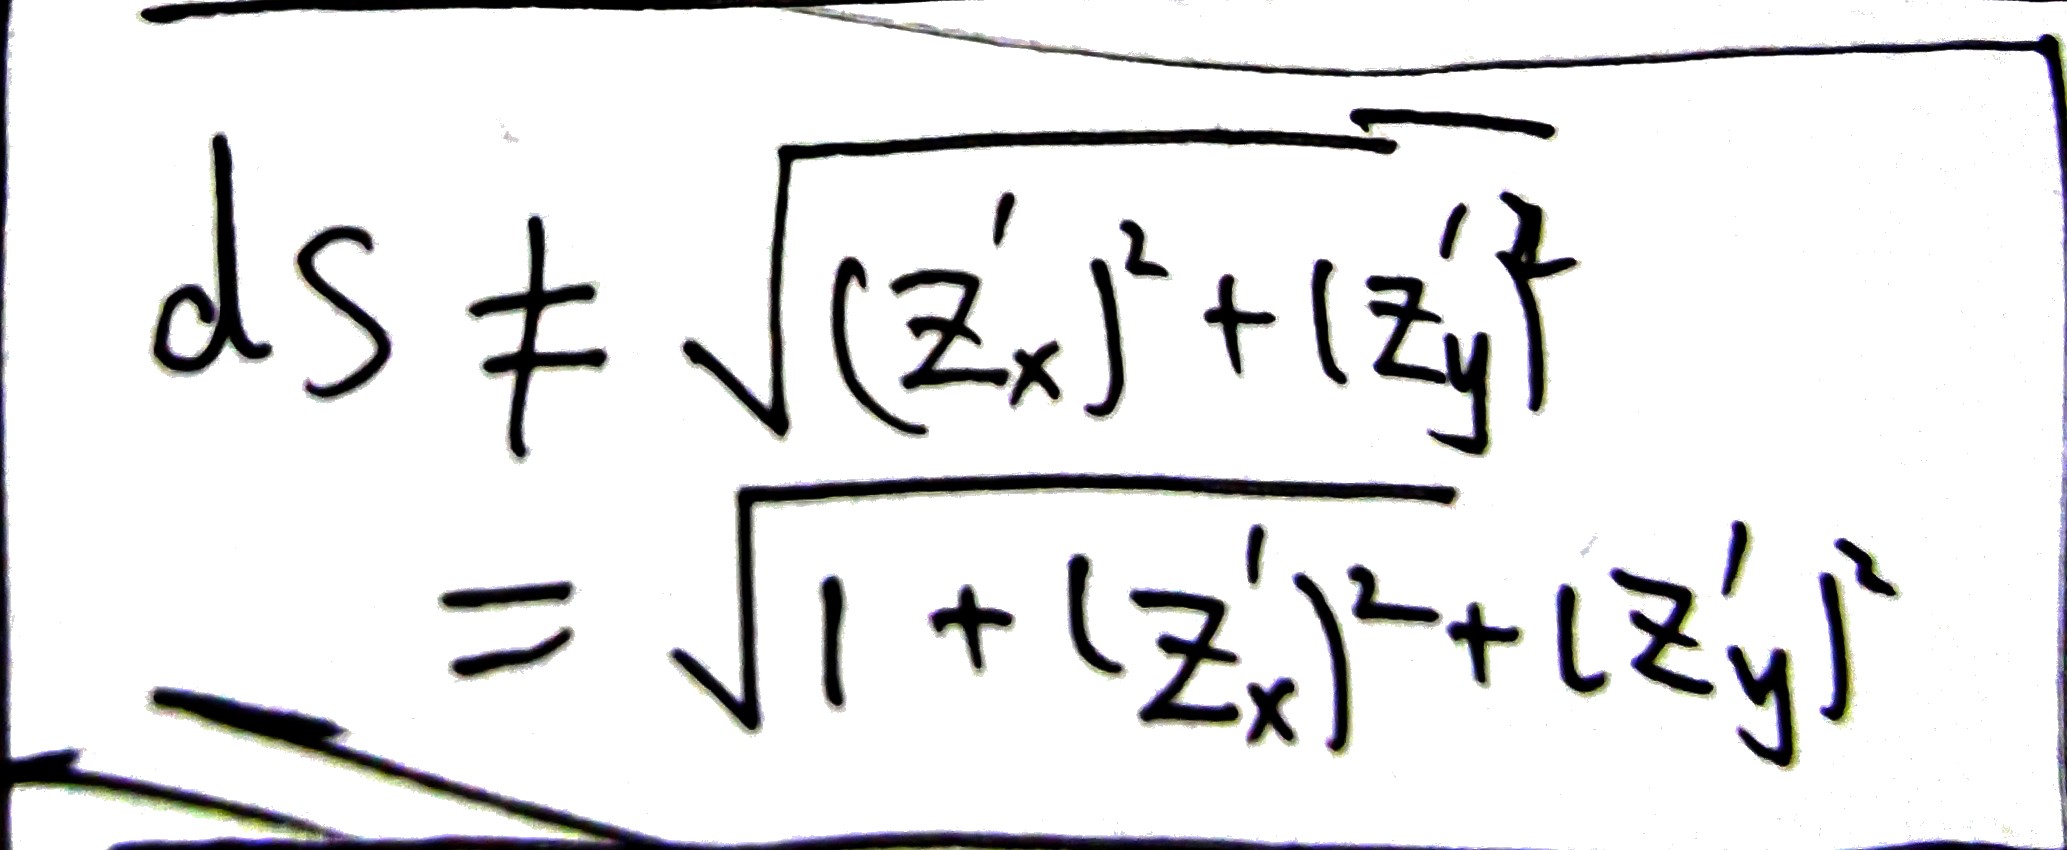 dS ≠ √((z'x)² + (z'y)²)
= √(1 + (z'x)² + (z'y)²)